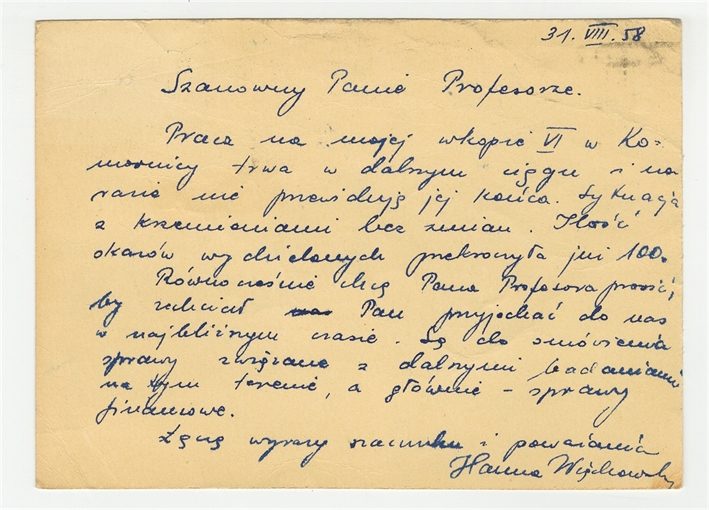 31. VIII. 58
Szanowny Panie Profesorze.
Praca na mojej wkopie VI w Ko=
mornicy trwa w dalszym ciągu i na
razie nie przewiduję jej końca. Sytuacja
z krzemieniami bez zmian. Ilość
okazów wydzielonych przekroczyła już 100.
Równocześnie chcę Pana Profesora prosić,
by zechciał Pan przyjechać do nas
w najbliższym czasie. Są do omówienia
sprawy związane z dalszymi badaniami
na tym terenie, a głównie – sprawy
finansowe.
Łączę wyrazy szacunku i poważania
Hanna Więckowska